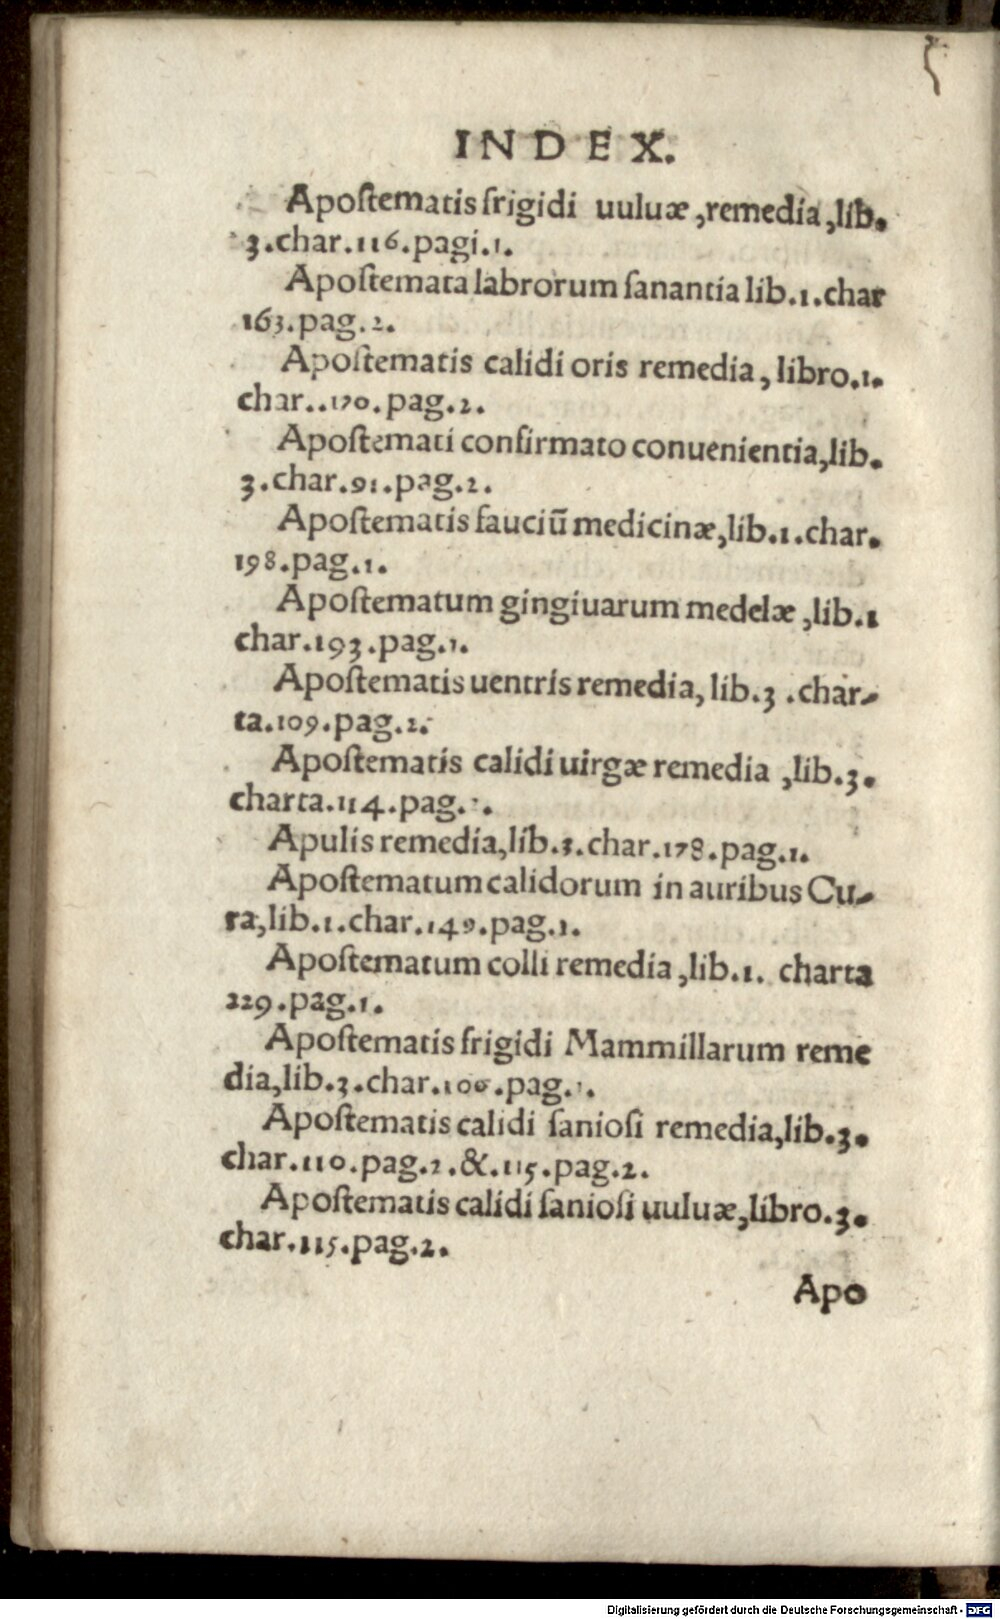 INDEX.
Apoſtematis frigidi uuluæ, remedia, lib.
3. char. 116. pagi. 1.
Apoſtemata labrorum ſanantia lib. 1. char
163. pag. 2.
Apoſtematis calidi oris remedia, libro. 1.
char.. 170. pag. 2.
Apoſtemati confirmato conuenientia, lib.
3. char. 91. pag. 2.
Apoſtematis fauciū medicinæ, lib. 1. char.
198. pag. 1.
Apoſtematum gingiuarum medelæ, lib. 1
char. 193. pag. 1.
Apoſtematis uentris remedia, lib. 3. char-
ta. 109. pag. 2.
Apoſtematis calidi uirgæ remedia, lib. 3.
charta. 114. pag.
Apulis remedia, lib. 3. char. 178. pag. 1.
Apoſtematum calidorum in auribus Cu-
ra, lib. 1. char. 149. pag. 1.
Apoſtematum colli remedia, lib. 1. charta
229. pag. 1.
Apoſtematis frigidi Mammillarum reme
dia, lib. 3. char. 106. pag. 1.
Apoſtematis calidi ſanioſi remedia, lib. 3.
char. 110. pag. 2. &. 115. pag. 2.
Apoſtematis calidi ſanioſi uuluæ, libro. 3.
char. 115. pag. 2.
Apo
Digitalisierung gefördert durch die Deutsche Forschungsgemeinschaft - DFG